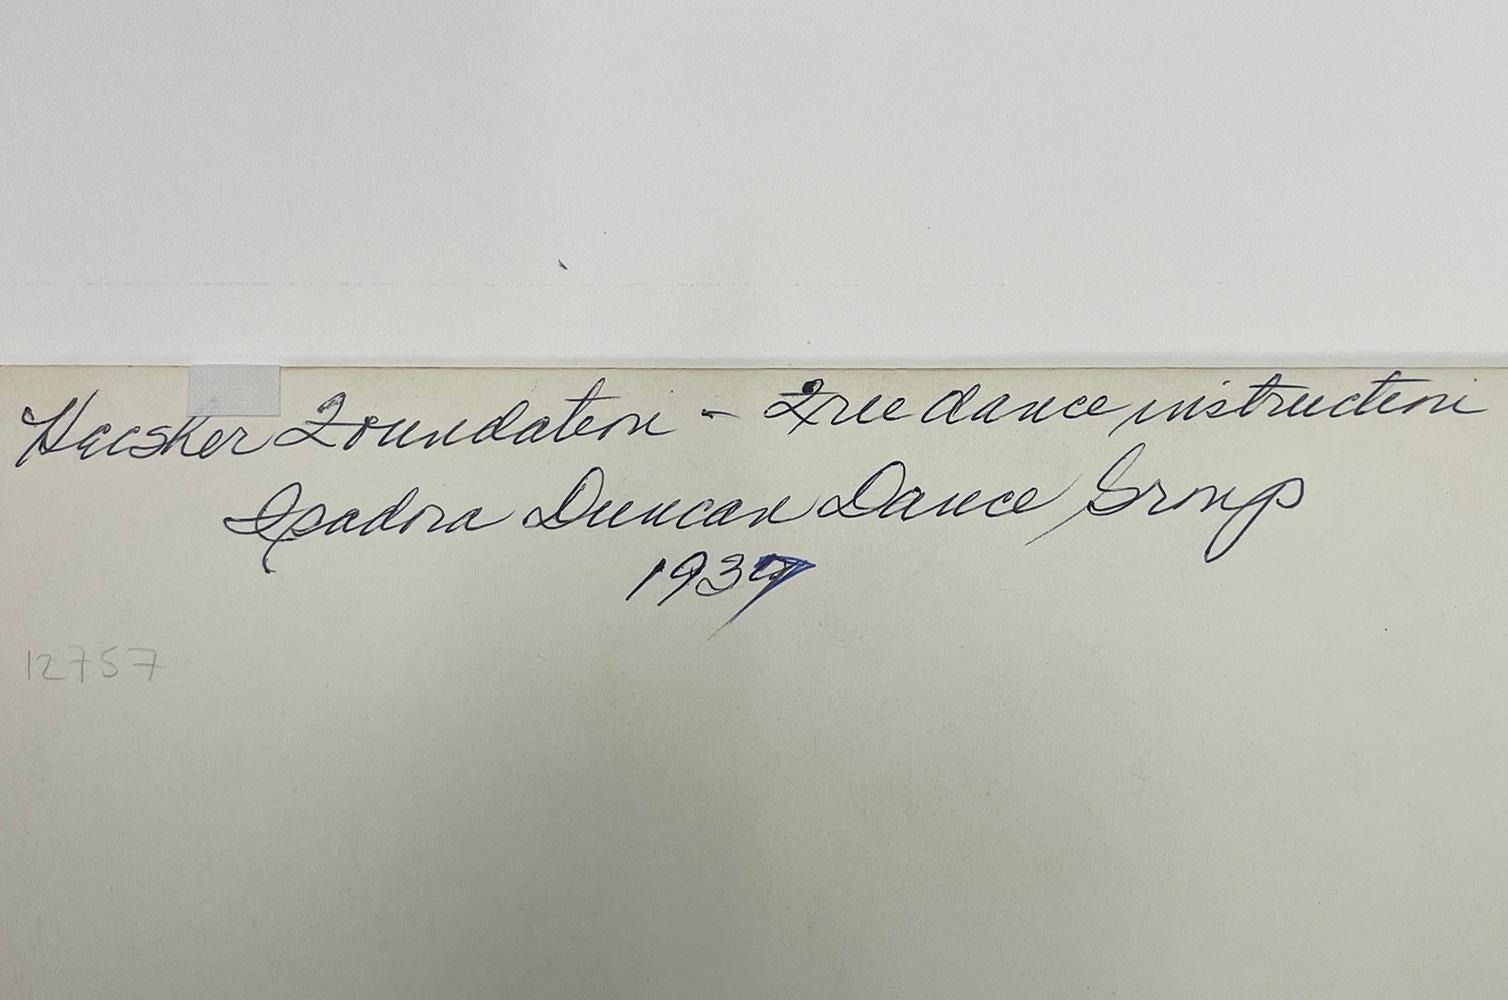 Foundation - Free dance instruction
Isadora Duncan Dance Group
1937
12757